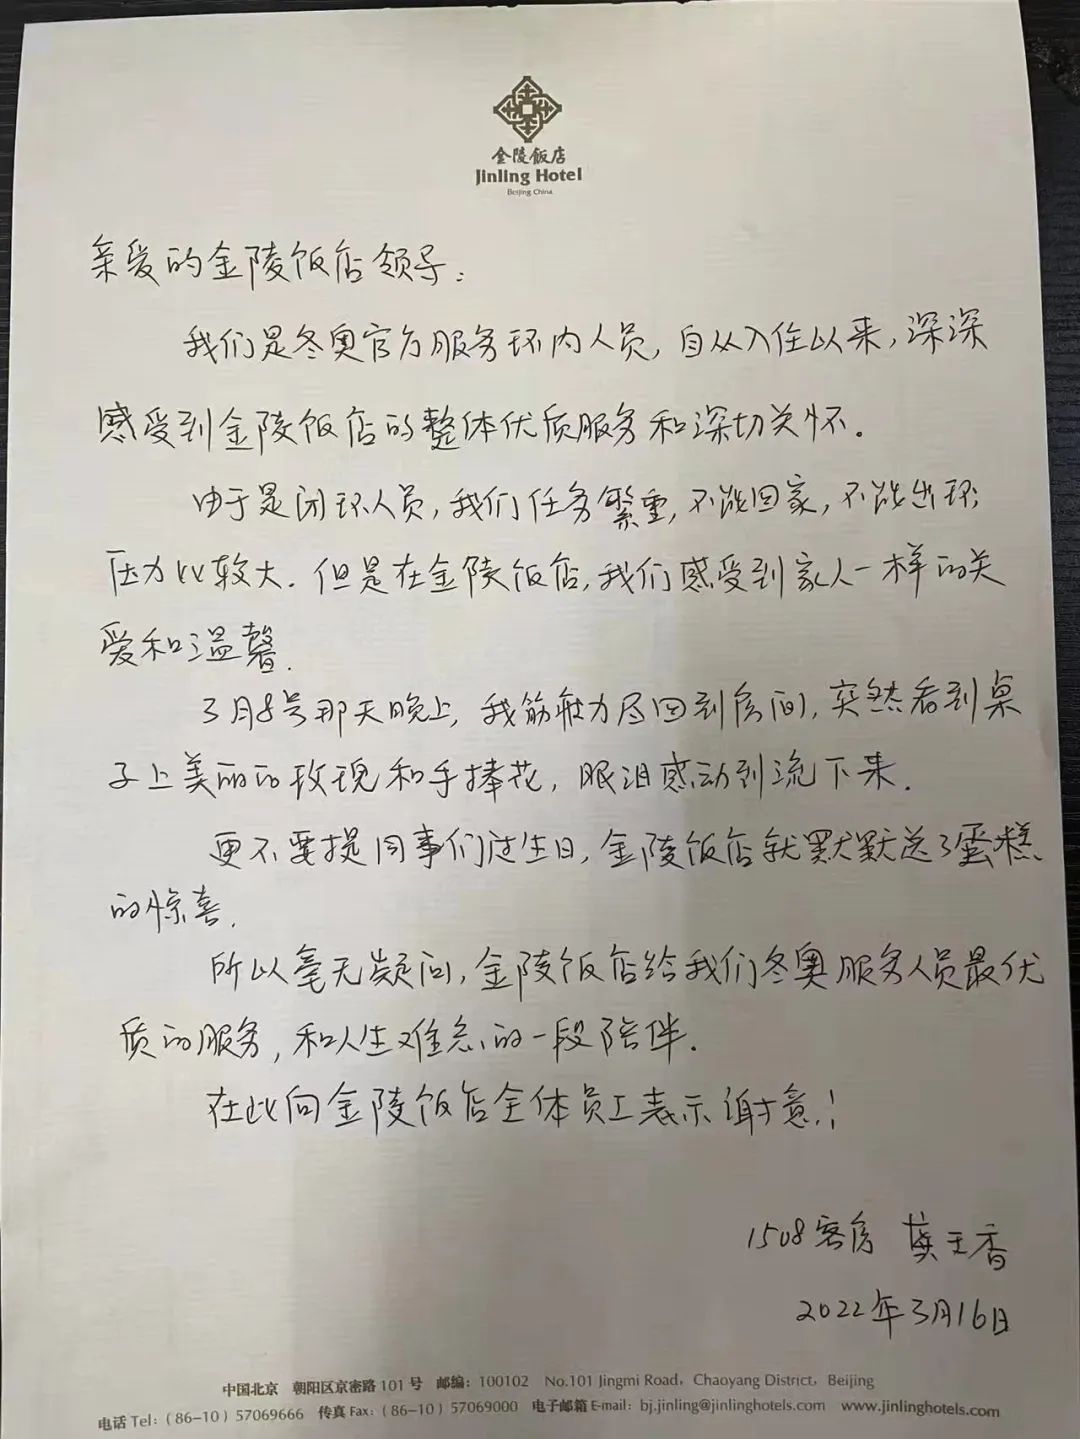 金陵飯店
Jinling Hotel
Beijing China
亲爱的金陵饭店领导：
我们是冬奥官方服务环内人员，自从入住以来，深深
感受到金陵饭店的整体优质服务和深切关怀。
由于是闭环人员，我们任务繁重，不能回家，不能出环，
压力比较大．但是在金陵饭店，我们感受到家人一样的关
爱和温馨．
3月8号那天晚上，我筋疲力尽回到房间，突然看到桌
子上美丽的玫瑰和手捧花，眼泪感动到流下来．
更不要提同事们过生日，金陵饭店就默默送了蛋糕
的惊喜．
所以毫无疑问，金陵饭店给我们冬奥服务人员最优
质的服务，和人生难忘的一段陪伴．
在此向金陵饭店全体员工表示谢意！
1508客房 龚玉香
2022年3月16日
中国北京 朝阳区京密路101号 邮编：100102 No.101 Jingmi Road，Chaoyang District，Beijing
电话 Tel:（86-10）57069666 传真 Fax:（86-10）57069000 电子邮箱 E-mail: bj.jinling@jinlinghotels.com www.jinlinghotels.com